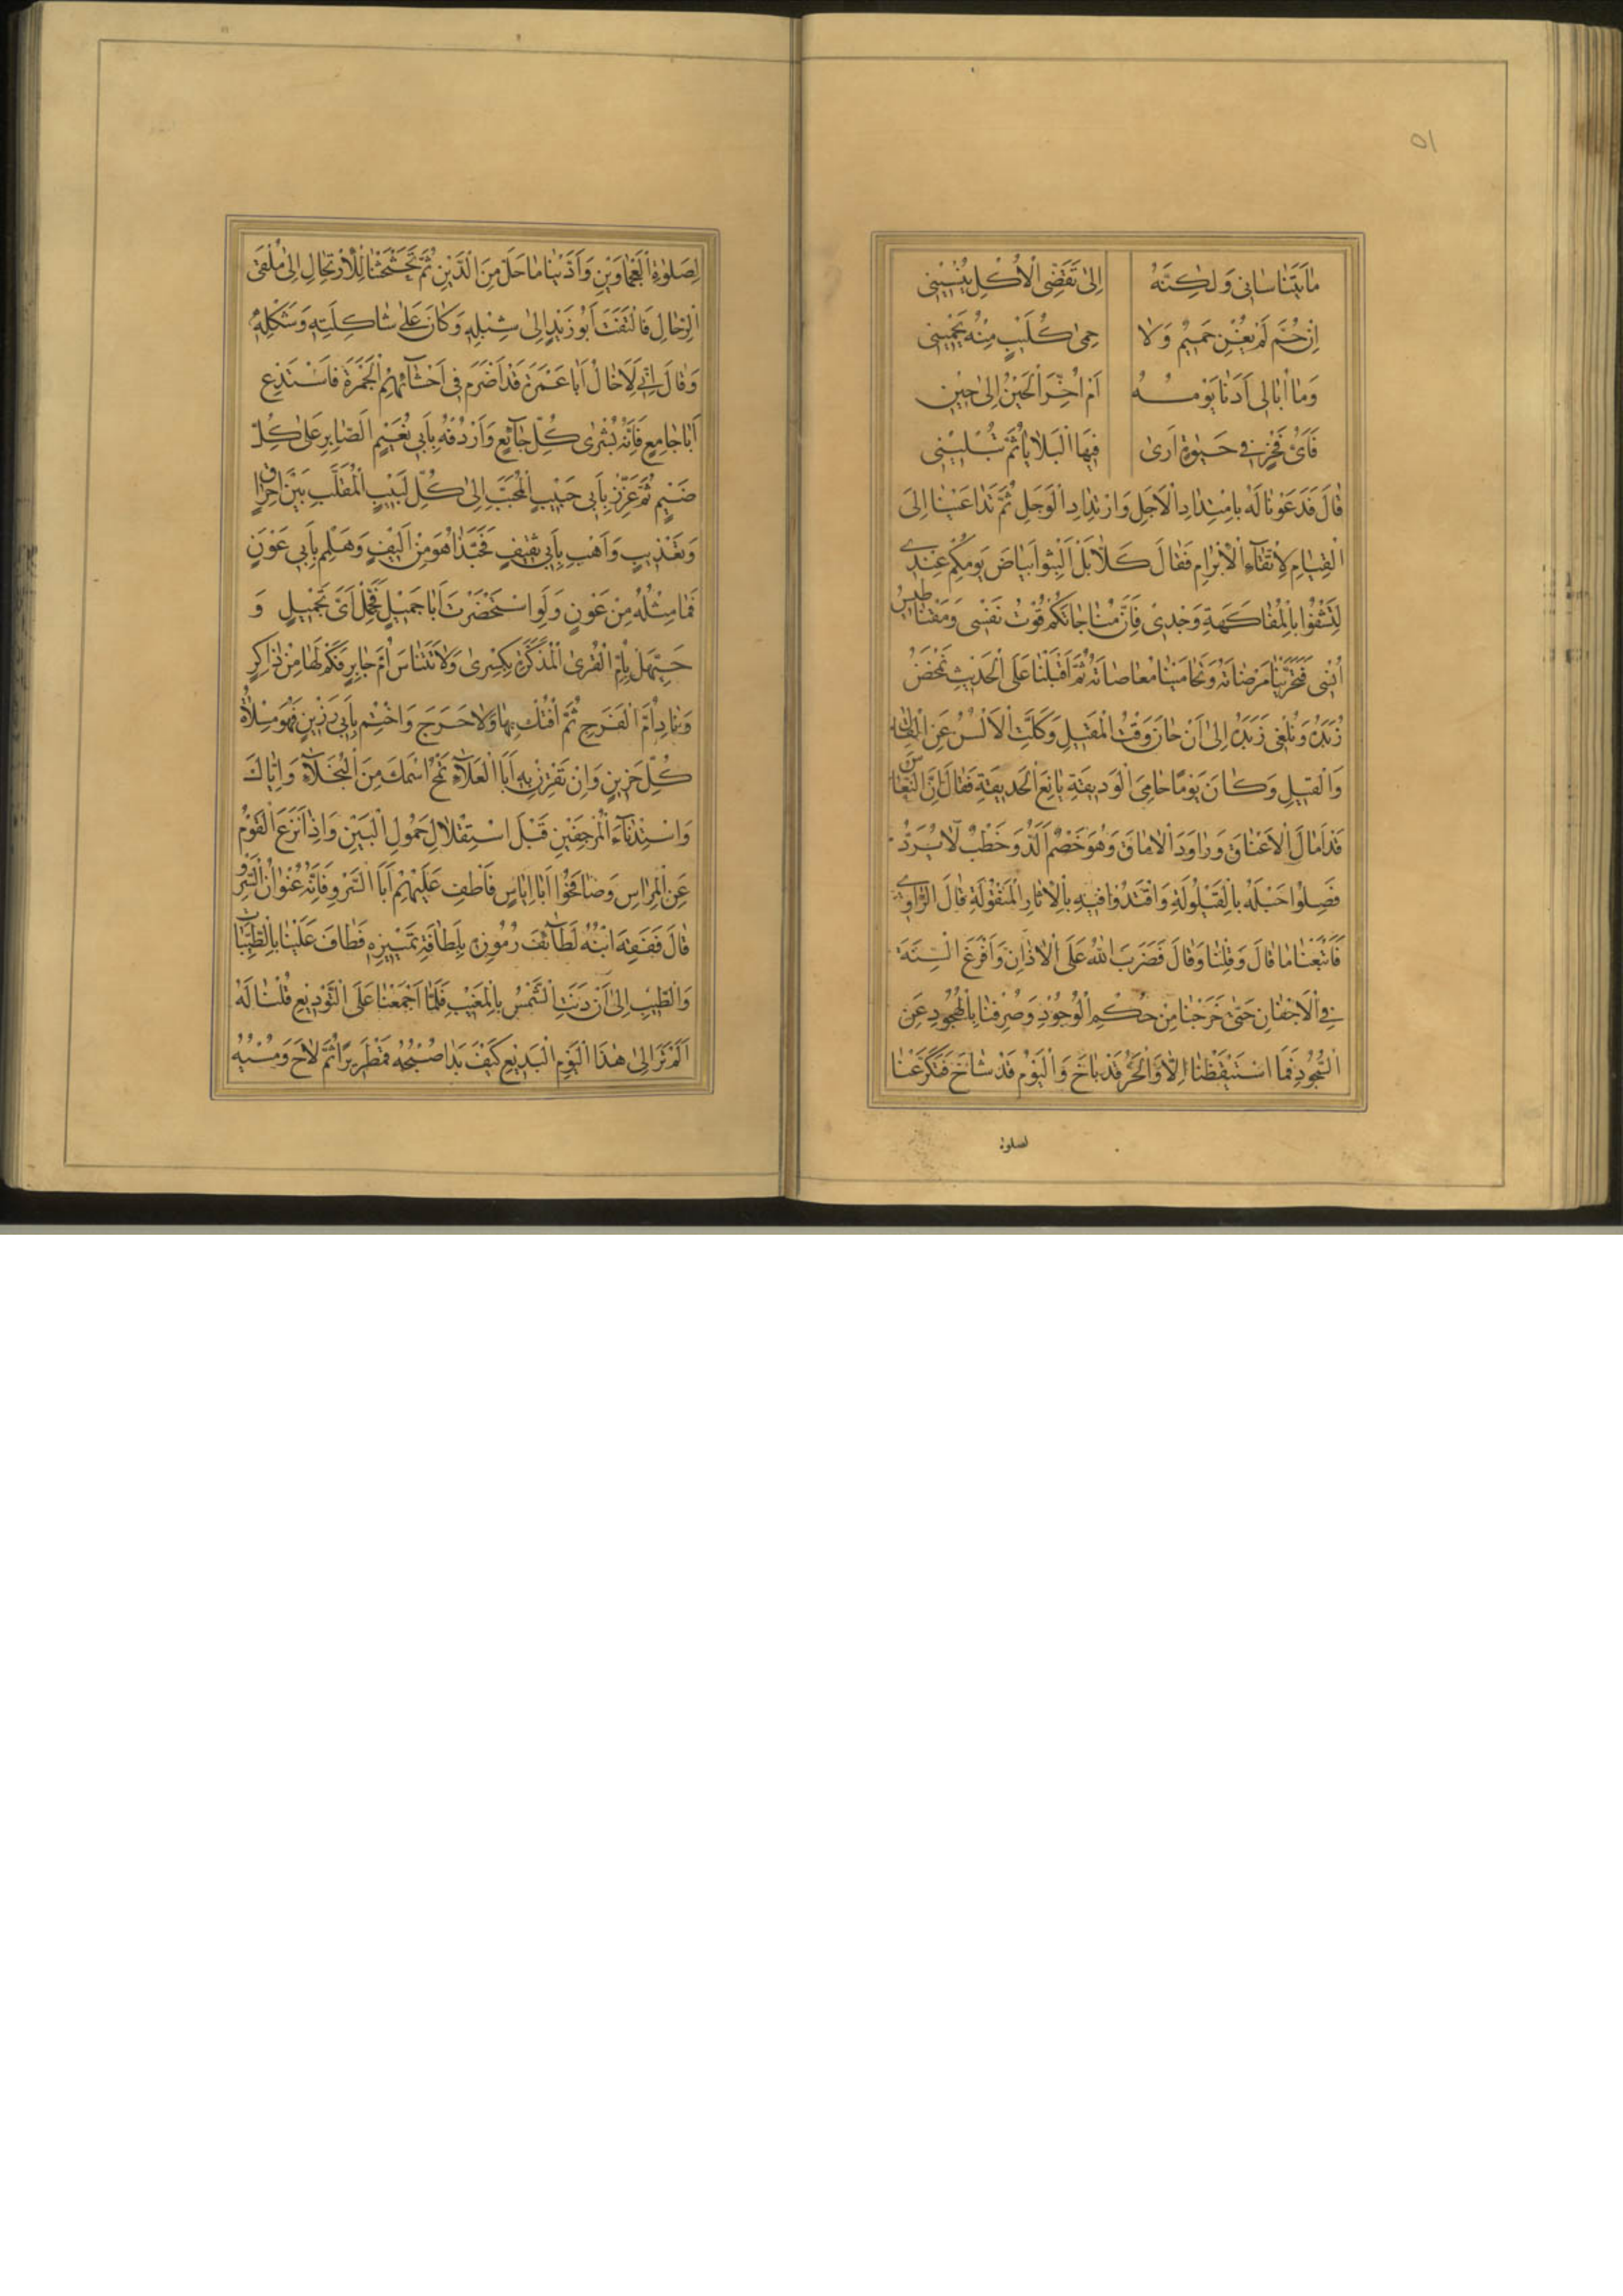 ٥١
مَا يَتَنَاسَانِى وَلٰكِنَّهُ اِلىٰ تَقَضِّى الْاُكْلِ يُنْسِيْنِى
اِنْ حُمَّ لَمْ يُغْنِ حَمِيْمٌ وَلَا حِمٰى كُلَيْبٍ مِنْهُ يَحْمِيْنِى
وَمَا اُبَالِى اَدَنَا يَوْمُهُ اَمْ اُخِّرَ الْحَيْنُ اِلىٰ حِيْنِ
فَاَىُّ فَخْرٍ فِى حَيٰوةٍ اَرىٰ فِيْهَا الْبَلَايَا ثُمَّ تُبْلِيْنِى
قَالَ فَدَعَوْنَا لَهُ بِامْتِدَادِ الْاَجَلِ وَارْتِدَادِ الْوَجَلِ ثُمَّ تَدَاعَيْنَا اِلَى
الْقِيَامِ لِاتِّقَآءِ الْاِبْرَامِ فَقَالَ كَلَّا بَلِ الْبَثُوا بَيَاضَ يَوْمِكُمْ عِنْدِى
لِتَشْفُوا بِالْمُفَاكَهَةِ وَجْدِى فَاِنَّ مُنَاجَاتَكُمْ قُوْتُ نَفْسِى وَمَغْنَاطِيْسُ
اُنْسِى فَتَحَرَّيْنَا مَرْضَاتَهُ وَتَحَامَيْنَا مُعَاصَاتَهُ ثُمَّ اَقْبَلْنَا عَلَى الْحَدِيْثِ نَمْخَضُ
زُبَدَهُ وَنُلْغِى زَبَدَهُ اِلىٰ اَنْ حَانَ وَقْتُ الْمَقِيْلِ وَكَلَّتِ الْاَلْسُنُ عَنِ الْقَالِ
وَالْقِيْلِ وَكَانَ يَوْمًا حَامِىَ الْوَدِيْقَةِ يَانِعَ الْحَدِيْقَةِ فَقَالَ اِنَّ النُّعَاسَ
قَدْ اَمَالَ الْاَعْنَاقَ وَرَاوَدَ الْاٰمَاقَ وَهُوَ خَصْمٌ اَلَدُّ وَخَطْبٌ لَا يُرَدُّ
فَصِلُوا حَبْلَهُ بِالْقَيْلُوْلَةِ وَاقْتَدُوا فِيْهِ بِالْاٰثَارِ الْمَنْقُوْلَةِ قَالَ الرَّاوِى
فَاتَّبَعْنَا مَا قَالَ وَقِلْنَا وَقَالَ فَضَرَبَ اللهُ عَلَى الْاٰذَانِ وَاَفْرَغَ السِّنَةَ
فِى الْاَجْفَانِ حَتّٰى خَرَجْنَا مِنْ حُكْمِ الْوُجُوْدِ وَصُرِفْنَا بِالْهُجُوْدِ عَنِ
السُّجُوْدِ فَمَا اسْتَيْقَظْنَا اِلَّا وَالْحَرُّ قَدْ بَاخَ وَالْيَوْمُ قَدْ شَاخَ فَتَكَرَّعْنَا
لصلوة
لِصَلٰوةِ الْعَجْمَاوَيْنِ وَاَدَّيْنَا مَا حَلَّ مِنَ الدَّيْنِ ثُمَّ تَحَشْحَشْنَا لِلْاِرْتِحَالِ اِلىٰ مُلْقَى
الرِّحَالِ فَالْتَفَتَ اَبُو زَيْدٍ اِلىٰ شِبْلِهِ وَكَانَ عَلىٰ شَاكِلَتِهِ وَشَكْلِهِ
وَقَالَ اِنِّى لَاَخَالُ اَبَا عَمْرَةَ قَدْ اَضْرَمَ فِى اَحْشَآئِهِمُ الْجَمْرَةَ فَاسْتَدْعِ
اَبَا جَامِعٍ فَاِنَّهُ بُشْرىٰ كُلِّ جَآئِعٍ وَاَرْدِفْهُ بِاَبِى نُعَيْمٍ الصَّابِرِ عَلىٰ كُلِّ
ضَيْمٍ ثُمَّ عَزِّزْ بِاَبِى حَبِيْبٍ الْمُحَبَّبِ اِلىٰ كُلِّ لَبِيْبٍ الْمُقَلَّبِ بَيْنَ اِحْرَاقٍ
وَتَعْذِيْبٍ وَاَهِبْ بِاَبِى ثَقِيْفٍ فَحَبَّذَا هُوَ مِنْ اَلِيْفٍ وَهَلُمَّ بِاَبِى عَوْنٍ
فَمَا مِثْلُهُ مِنْ عَوْنٍ وَلَوِ اسْتَحْضَرْتَ اَبَا جَمِيْلٍ لَجَمَّلَ اَىَّ تَجْمِيْلٍ وَ
حَيَّهَلْ بِاُمِّ الْقُرىٰ الْمُذَكِّرَةِ بِكِسْرىٰ وَلَا تَتَنَاسَ اُمَّ جَابِرٍ فَكَمْ لَهَا مِنْ ذَاكِرٍ
وَنَادِ اُمَّ الْفَرَجِ ثُمَّ افْتُكْ بِهَا وَلَا حَرَجَ وَاخْتِمْ بِاَبِى رَزِيْنٍ فَهُوَ مَسْلَاةُ
كُلِّ حَزِيْنٍ وَاِنْ تَقْرُنْ بِهِ اَبَا الْعَلَآءِ تَمْحُ اسْمَكَ مِنَ الْبُخَلَآءِ وَاِيَّاكَ
وَاسْتِدْنَآءَ الْمُرْجِفَيْنِ قَبْلَ اسْتِقْلَالِ حُمُوْلِ الْبَيْنِ وَاِذَا نَزَعَ الْقَوْمُ
عَنِ الْمِرَاسِ وَصَافَحُوا اَبَا اِيَاسٍ فَاَطِفْ عَلَيْهِمْ اَبَا السَّرْوِ فَاِنَّهُ عُنْوَانُ السَّرْوِ
قَالَ فَفَقِهَ ابْنُهُ لَطَآئِفَ رُمُوْزِهِ بِلَطَافَةِ تَمْيِيْزِهِ فَطَافَ عَلَيْنَا بِالطَّيِّبَاتِ
وَالطِّيْبِ اِلىٰ اَنْ دَنَتِ الشَّمْسُ بِالْمَغِيْبِ فَلَمَّا اَجْمَعْنَا عَلَى التَّوْدِيْعِ قُلْنَا لَهُ
اَلَمْ تَرَ اِلىٰ هٰذَا الْيَوْمِ الْبَدِيْعِ كَيْفَ بَدَا صُبْحُهُ قَمْطَرِيْرًا ثُمَّ لَاحَ وَمُسْيُهُ